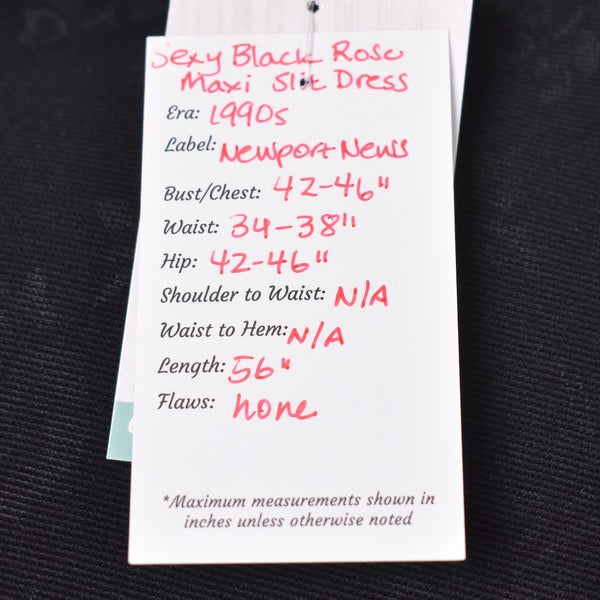 Sexy Black Rose
Maxi Slit Dress
Era: 1990s
Label: Newport News
Bust/Chest: 42-46"
Waist: 34-38"
Hip: 42-46"
Shoulder to Waist: N/A
Waist to Hem: N/A
Length: 56"
Flaws: none
*Maximum measurements shown in
inches unless otherwise noted